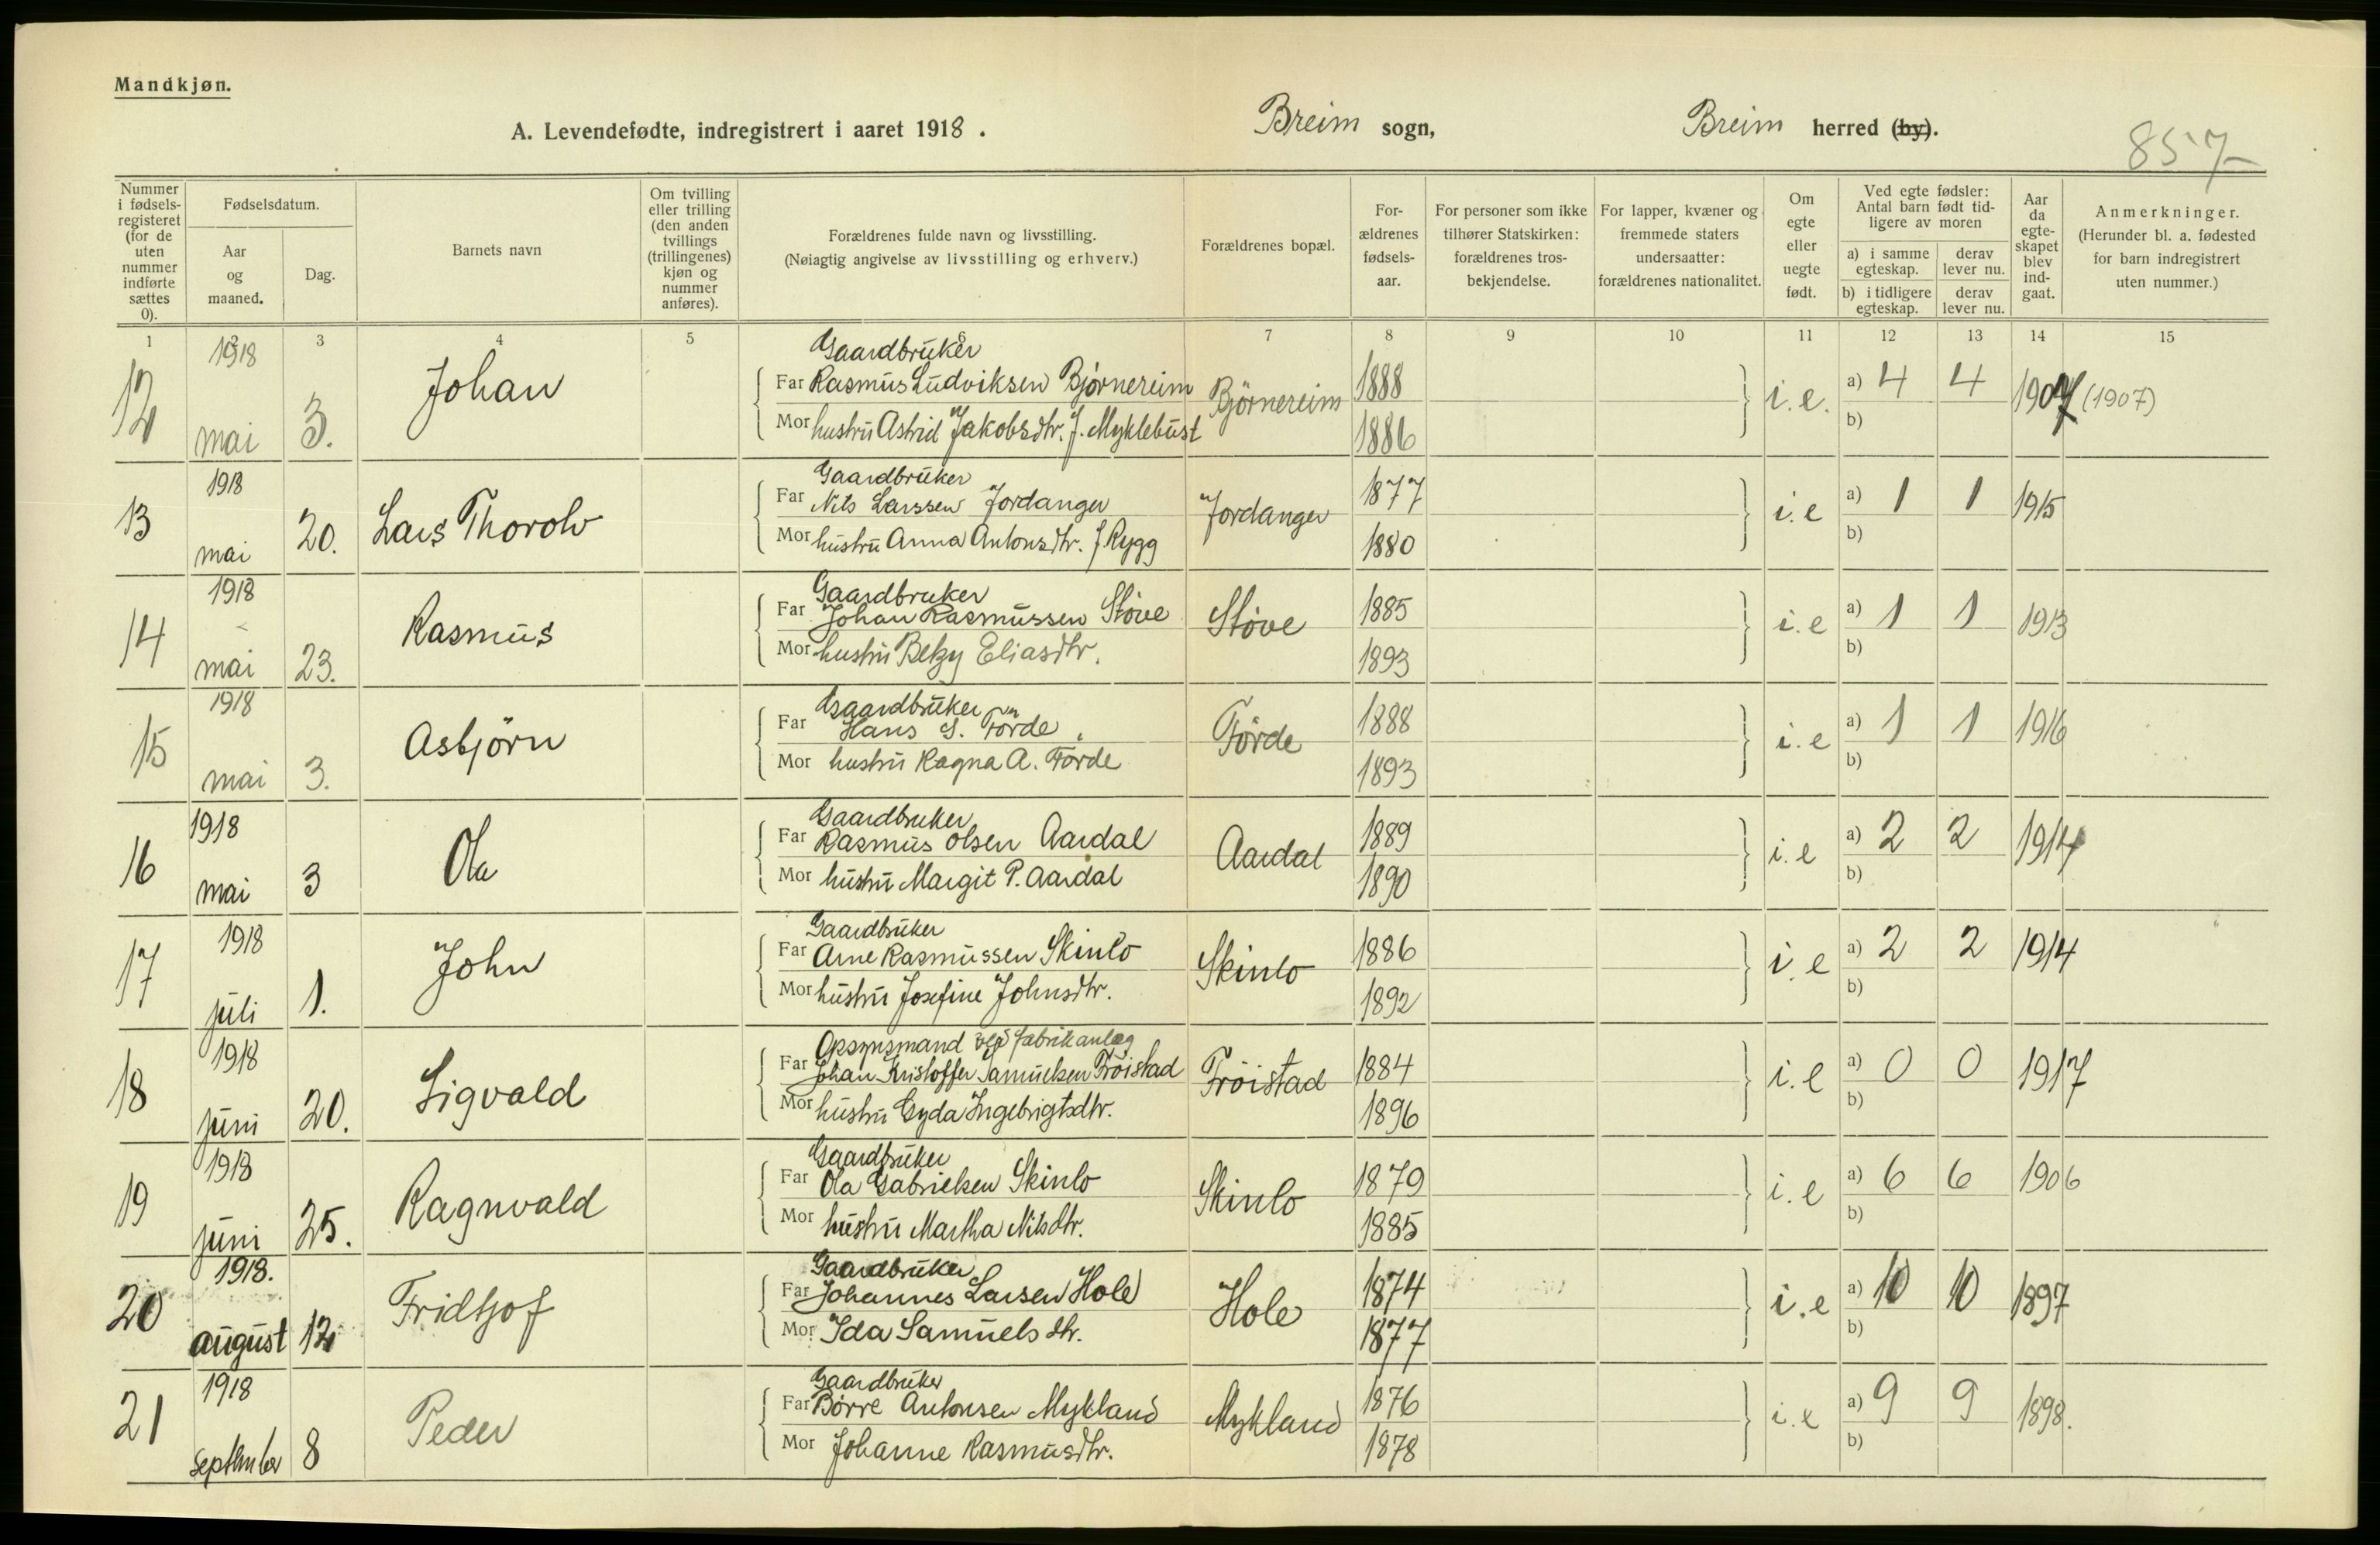 Mandkjøn.
A. Levendefødte, indregistrert i aaret 1918. Breim sogn, Breim herred (by).
857
Nummer i fødselsregisteret (for de uten nummer indførte sættes 0).
Fødselsdatum.
Aar og maaned.
Dag.
Barnets navn
Om tvilling eller trilling (den anden tvillings (trillingenes) kjøn og nummer anføres).
Forældrenes fulde navn og livsstilling.
(Nøiagtig angivelse av livsstilling og erhverv.)
Forældrenes bopæl.
Forældrenes fødselsaar.
For personer som ikke tilhører Statskirken: forældrenes trosbekjendelse.
For lapper, kvæner og fremmede staters undersaatter: forældrenes nationalitet.
Om egte eller uegte født.
Ved egte fødsler: Antal barn født tidligere av moren
a) i samme egteskap. derav lever nu.
b) i tidligere egteskap. derav lever nu.
Aar da egteskapet blev indgaat.
Anmerkninger.
(Herunder bl. a. fødested for barn indregistrert uten nummer.)
1 2 3 4 5 6 7 8 9 10 11 12 13 14 15
1918 Gaardbruker
12 mai 3. Johan Far Rasmus Ludviksen Bjørnereim Bjørnereim 1888 i.e. a) 4 4 1907 (1907)
Mor hustru Astrid Jakobsdtr. f. Myklebust 1886 b)
1918 Gaardbruker
13 mai 20. Lars Thorolv Far Nils Larssen Jordanger Jordanger 1877 i.e a) 1 1 1915
Mor hustru Anna Antonsdtr. f. Rygg 1880 b)
1918 Gaardbruker
14 mai 23. Rasmus Far Johan Rasmussen Støve Støve 1885 i.e a) 1 1 1913
Mor hustru Betzy Eliasdtr. 1893 b)
1918 Gaardbruker
15 mai 3. Asbjörn Far Hans S. Förde Förde 1888 i.e a) 1 1 1916
Mor hustru Ragna A. Förde 1893 b)
1918 Gaardbruker
16 mai 3 Ola Far Rasmus Olsen Aardal Aardal 1889 i.e a) 2 2 1914
Mor hustru Margit P. Aardal 1890 b)
1918 Gaardbruker
17 juli 1. John Far Arne Rasmussen Skinlo Skinlo 1886 i.e a) 2 2 1914
Mor hustru Josefine Johnsdtr. 1892 b)
1918 Opsynsmand ved fabrikanlæg
18 juni 20. Sigvald Far Johan Kristoffer Samuelsen Tröistad Tröistad 1884 i.e a) 0 0 1917
Mor hustru Eyda Ingebrigtsdtr. 1896 b)
1918 Gaardbruker
19 juni 25. Ragnvald Far Ola Gabrielsen Skinlo Skinlo 1879 i.e a) 6 6 1906
Mor hustru Martha Nilsdtr. 1885 b)
1918. Gaardbruker
20 august 12 Fridtjof Far Johannes Larsen Hole Hole 1874 i.e a) 10 10 1897
Mor Ida Samuelsdtr. 1877 b)
1918 Gaardbruker
21 september 8 Peder Far Børre Antonsen Mykland Mykland 1876 i.e a) 9 9 1898.
Mor Johanne Rasmusdtr. 1878 b)